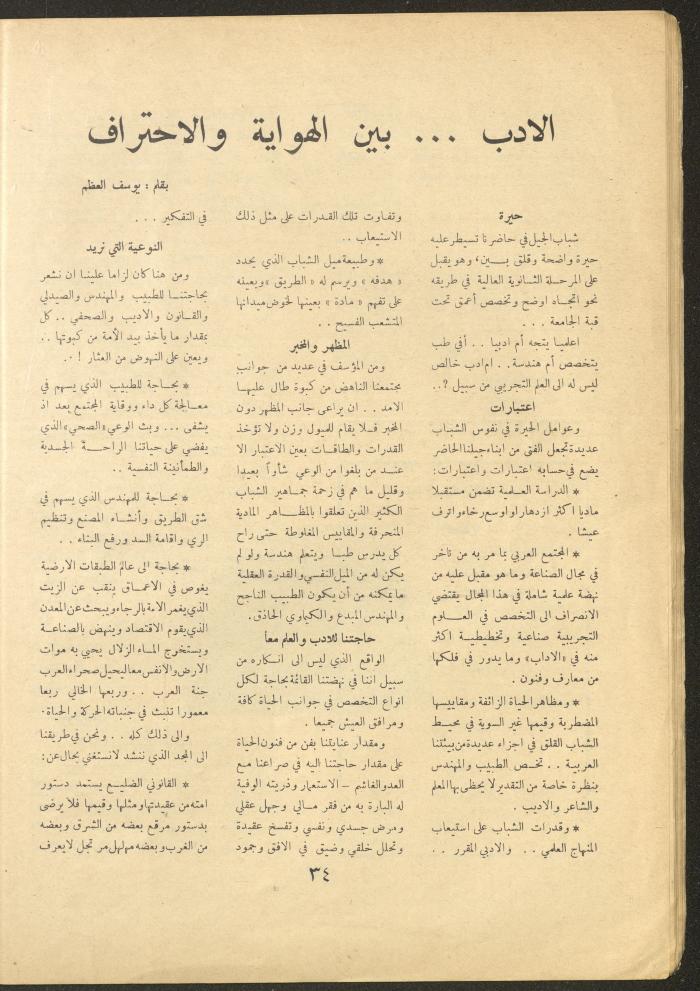 الادب ... بين الهواية والاحتراف
بقلم : يوسف العظم
حيرة
شباب الجيل في حاضرنا تسيطر عليه
حيرة واضحة وقلق بـــين، وهو يقبل
على المرحـلة الثـانوية العالية في طريقه
نحو اتجـاه اوضح وتخصص أعمق تحت
قبة الجامعة . . .
اعلميـا يتجه أم ادبيا . . أفي طب
يتخصص أم هندسة . . ام ادب خالص
ليس له الى العلم التجريبي من سبيل ؟..
اعتبارات
وعوامل الحيرة في نفوس الشبـاب
عديدة تجعل الفتى من ابناء جيلنا الحاضر
يضع في حسابه اعتبارات واعتبارات:
* الدراسة العـلمية تضمن مستقبلا
ماديا اكثر ازدهارا واوسع رخاء واترف
عيشا .
* المجتمع العربي بما مر به من تاخر
في مجال الصناعة وما هو مقبل عليه من
نهضة علمية شاملة في هذا المجال يقتضي
الانصراف الى التخصص في العـــلوم
التجريبية صناعية وتخطيطيـة اكثر
منه في «الاداب» وما يدور في فلكهـا
من معارف وفنون .
* ومظاهر الحياة الزائفة ومقاييسها
المضطربة وقيمها غير السوية في محيـط
الشباب القلق في اجزاء عديدة من بيئتنا
العربيـة . . تخـص الطبيب والمهندس
بنظرة خاصة من التقدير لا يحظى بها المعلم
والشاعر والاديب .
* وقدرات الشباب على استيعاب
المنهاج العلمي . . والادبي المقرر . .
وتفاوت تلك القدرات على مثل ذلك
الاستيعاب ..
* وطبيعة ميل الشباب الذي يحدد
« هدفه » ويرسم له « الطريق » ويعينه
على تفهم « مادة » بعينها لخوض ميدانها
المتشعب الفسيح . .
المظهر والمخبر
ومن المؤسف في عديد من جوانب
مجتمعنا الناهض من كبوة طال عليهـا
الامد . . ان يراعى جانب المظهر دون
المخبر فـلا يقام للميول وزن ولا تؤخذ
القدرات والطاقات بعين الاعتبار الا
عنـد من بلغوا من الوعي شأواً بعيدا
وقليل ما هم في زحمة جمـاهير الشباب
الكثير الذين تعلقوا بالمظـاهر المادية
المنحرفة والمقاييس المغلوطة حتى راح
كل يدرس طبـا ويتعلم هندسة ولو لم
يكن له من الميل النفسي والقدرة العقلية
ما يمكنه من أن يكون الطبيب الناجح
والمهندس المبدع والكيماوي الحاذق.
حاجتنا للادب والعلم معاً
الواقع الذي ليس الى انكاره من
سبيل اننا في نهضتنا القائمة بحاجة لكل
انواع التخصص في جوانب الحياة كافة
ومرافق العيش جميعا .
ومقدار عنايتنا بفن من فنون الحياة
على مقدار حاجتنا اليه في صراعنا مـع
العدو الغاشم – الاستعمار وذريته الوفية
له البارة به من فقر مـالي وجهل عقلي
ومرض جسدي ونفسي وتفسخ عقيدة
وتحلل خلقي وضيق في الافق وجمود
في التفكير . . .
النوعية التي نريد
ومن هنا كان لزاما علينا ان نشعر
بحاجتنـا للطبيب والمهندس والصيدلي
والقـانون والاديب والصحفي .. كل
بمقدار ما يأخذ بيد الأمة من كبوتها ..
ويعين على النهوض من العثار ! .
* بحـاجة للطبيب الذي يسهم في
معـالجة كل داء ووقاية المجتمع بعد اذ
يشفى ... وبث الوعي «الصحي» الذي
يفضي على حياتنا الراحـــة الجسدية
والطمأنينة النفسية ..
* بحـاجة للمهندس الذي يسهم في
شق الطريق وأنشـاء المصنع وتنظيم
الري واقامة السد ورفع البناء . .
* بحاجة الى عالم الطبقات الارضية
يغوص في الاعمـاق ينقب عن الزيت
الذي يغمر الامة بالرجاء ويبحث عن المعدن
الذي يقوم الاقتصاد وينهض بالصناعـة
ويستخرج المـاء الزلال يحيي به موات
الارض والانفس معا ليحيل صحراء العرب
جنة العرب . . وربعها الخالي ربعا
معمورا تنبث في جنباته الحركة والحياة.
والى ذلك كله . . ونحن في طريقنا
الى المجد الذي ننشد لا نستغني بحال عن:
* القانوني الضليـع يستمد دستور
امته من عقيدتها ومثلها وقيمها فلا يرضى
بدستور مرقع بعضه من الشرق وبعضه
من الغرب وبعضه مهلهل مرتجل لا يعرف
٣٤